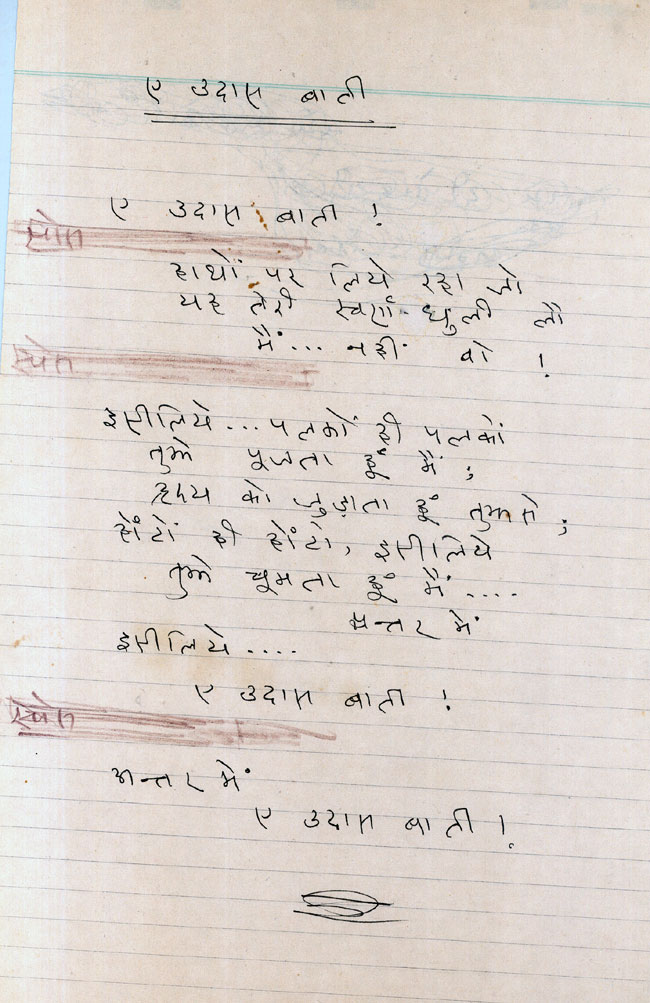 ए उदास बाती
ए उदास बाती !
स्पेस
हाथों पर लिये रहा जो
यह तेरी स्वर्ण-धुली लौ
मैं... नहीं वो !
स्पेस
इसीलिये... पलकों ही पलकों
तुझे पूजता हूँ मैं ;
हृदय को जुड़ाता हूँ तुझसे ;
होंटों ही होंटों, इसीलिये
तुझे चूमता हूँ मैं ....
अन्तर में
इसीलिये ....
ए उदास बाती !
स्पेस
अन्तर में
ए उदास बाती !